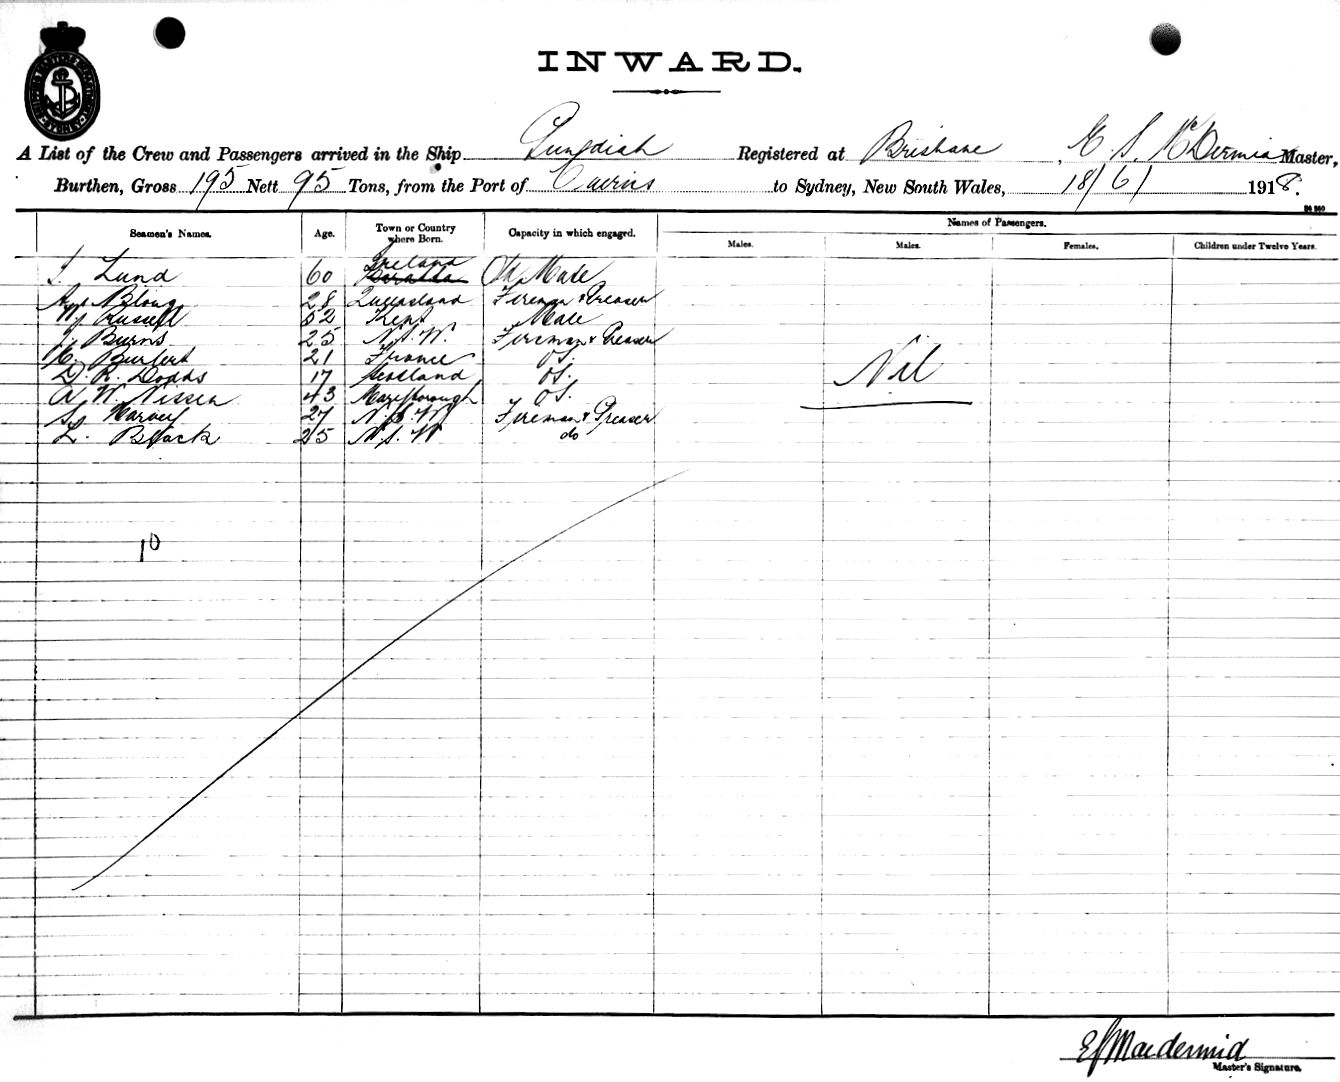 INWARD.
A List of the Crew and Passengers arrived in the Ship Registered at Brisbane E. S. McDermid Master,
Burthen, Gross 195 Nett 95 Tons, from the Port of Cairns to Sydney, New South Wales, 18/6/ 1918.
Seamen's Names. Age. Town or Country where Born. Capacity in which engaged. Names of Passengers.
Males. Males. Females. Children under Twelve Years.
Lund 60 Ireland Ch. Mate
28 Queensland Fireman & Greaser
Wj Russell 52 Kent Mate
J. Burns 25 N.S.W. Fireman & Greaser
21 France OS.
D. R. Dodds 17 Scotland OS.
A W. Nissen 43 Maryborough OS.
Harvey 27 N.S.W Fireman & Greaser
L. Black 25 N.S.W do
Nil
10
Macdermid
Master's Signature.